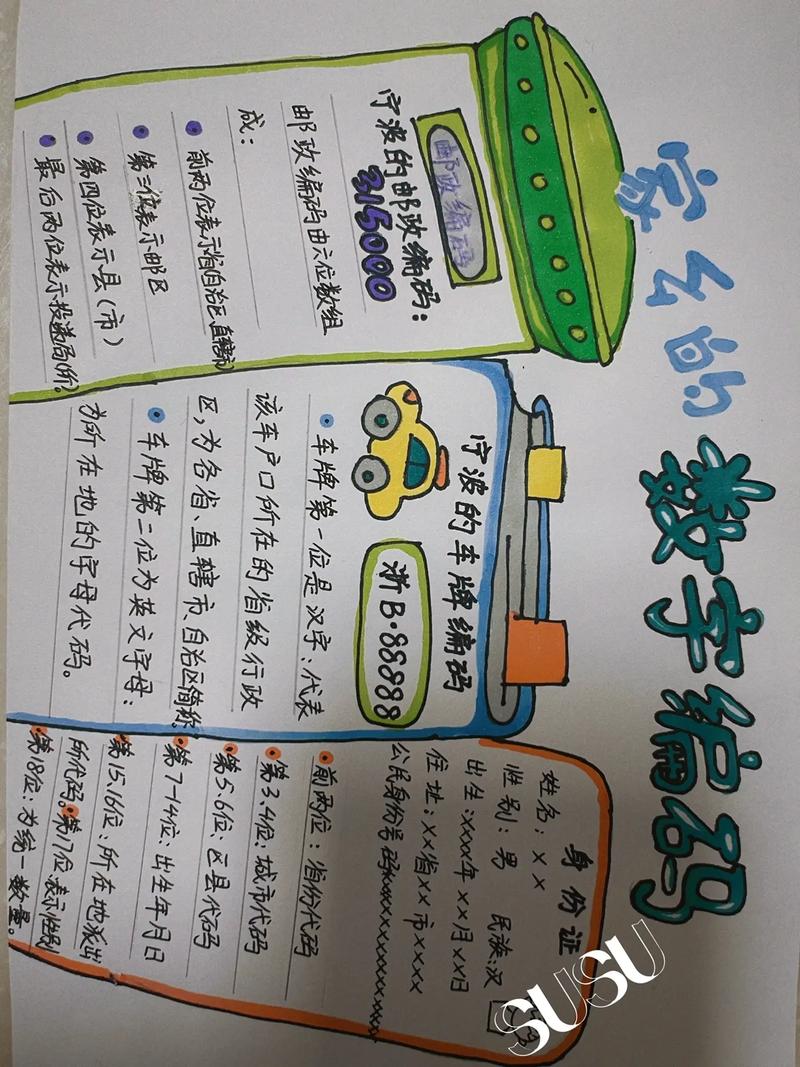 家乡的
数字编码
邮政编码
宁波的邮政编码:
315000
邮政编码由六位数组
成:
前两位表示省(自治区、直辖市
第三位表示邮区
第四位表示县(市)
最后两位表示投递局(所)。
宁波的车牌编码
浙B·88888
车牌第一位是汉字:代表
该车户口所在的省级行政
区,为各省、直辖市、自治区简称。
车牌第二位为英文字母:
为所在地的字母代码。
身份证
姓名:××
性别:男 民族:汉
出生:××××年××月××日
住址:××省××市××××
公民身份号码××××××××××××××××××
前两位:省份代码
第3.4位:城市代码
第5.6位:区县代码
第7-14位:出生年月日
第15.16位:所在地派出
所代码。第17位:表示性别
第18位:为统一数量。
SUSU